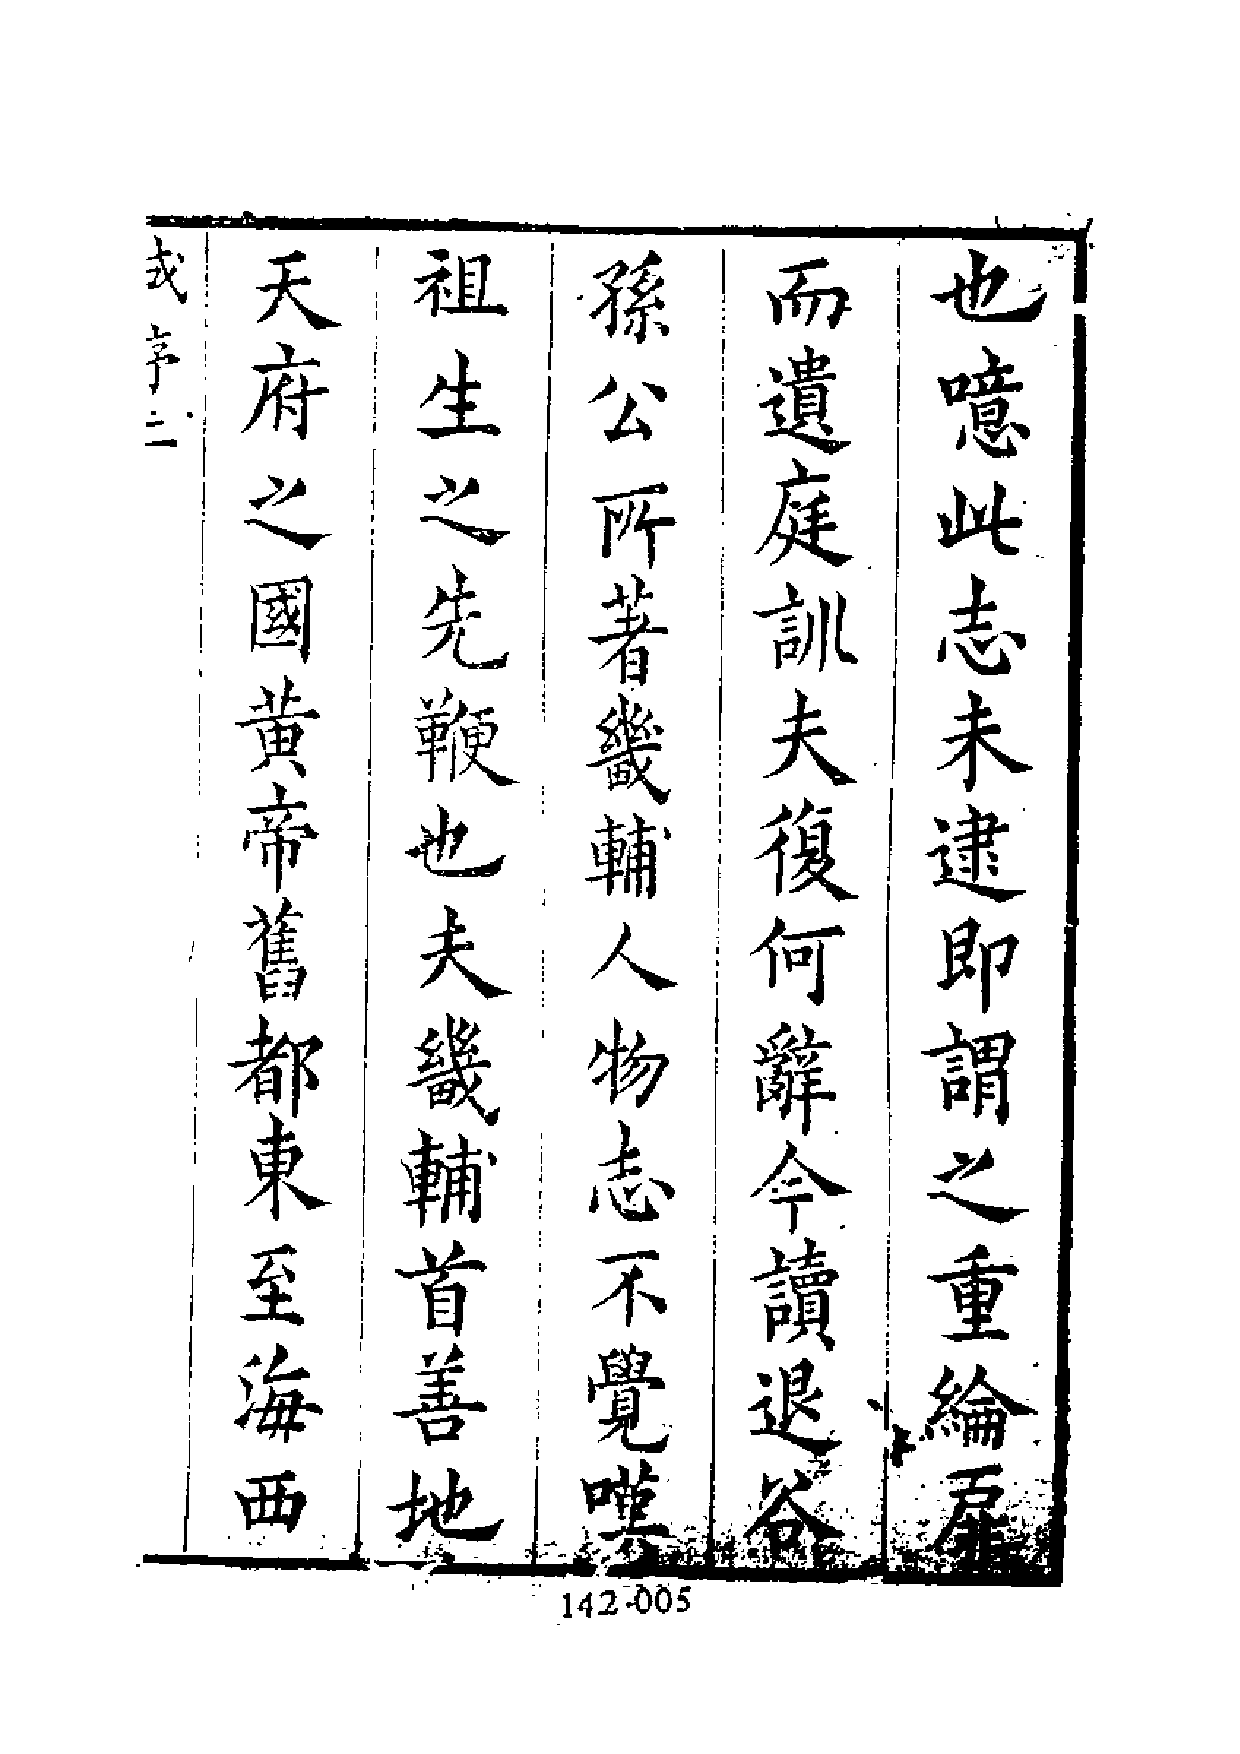 也噫此志未逮即謂之重綸扉
而遺庭訓夫復何辭今讀退谷
孫公所著畿輔人物志不覺嘆
祖生之先鞭也夫畿輔首善地
天府之國黄帝舊都東至海西
序二
142-005